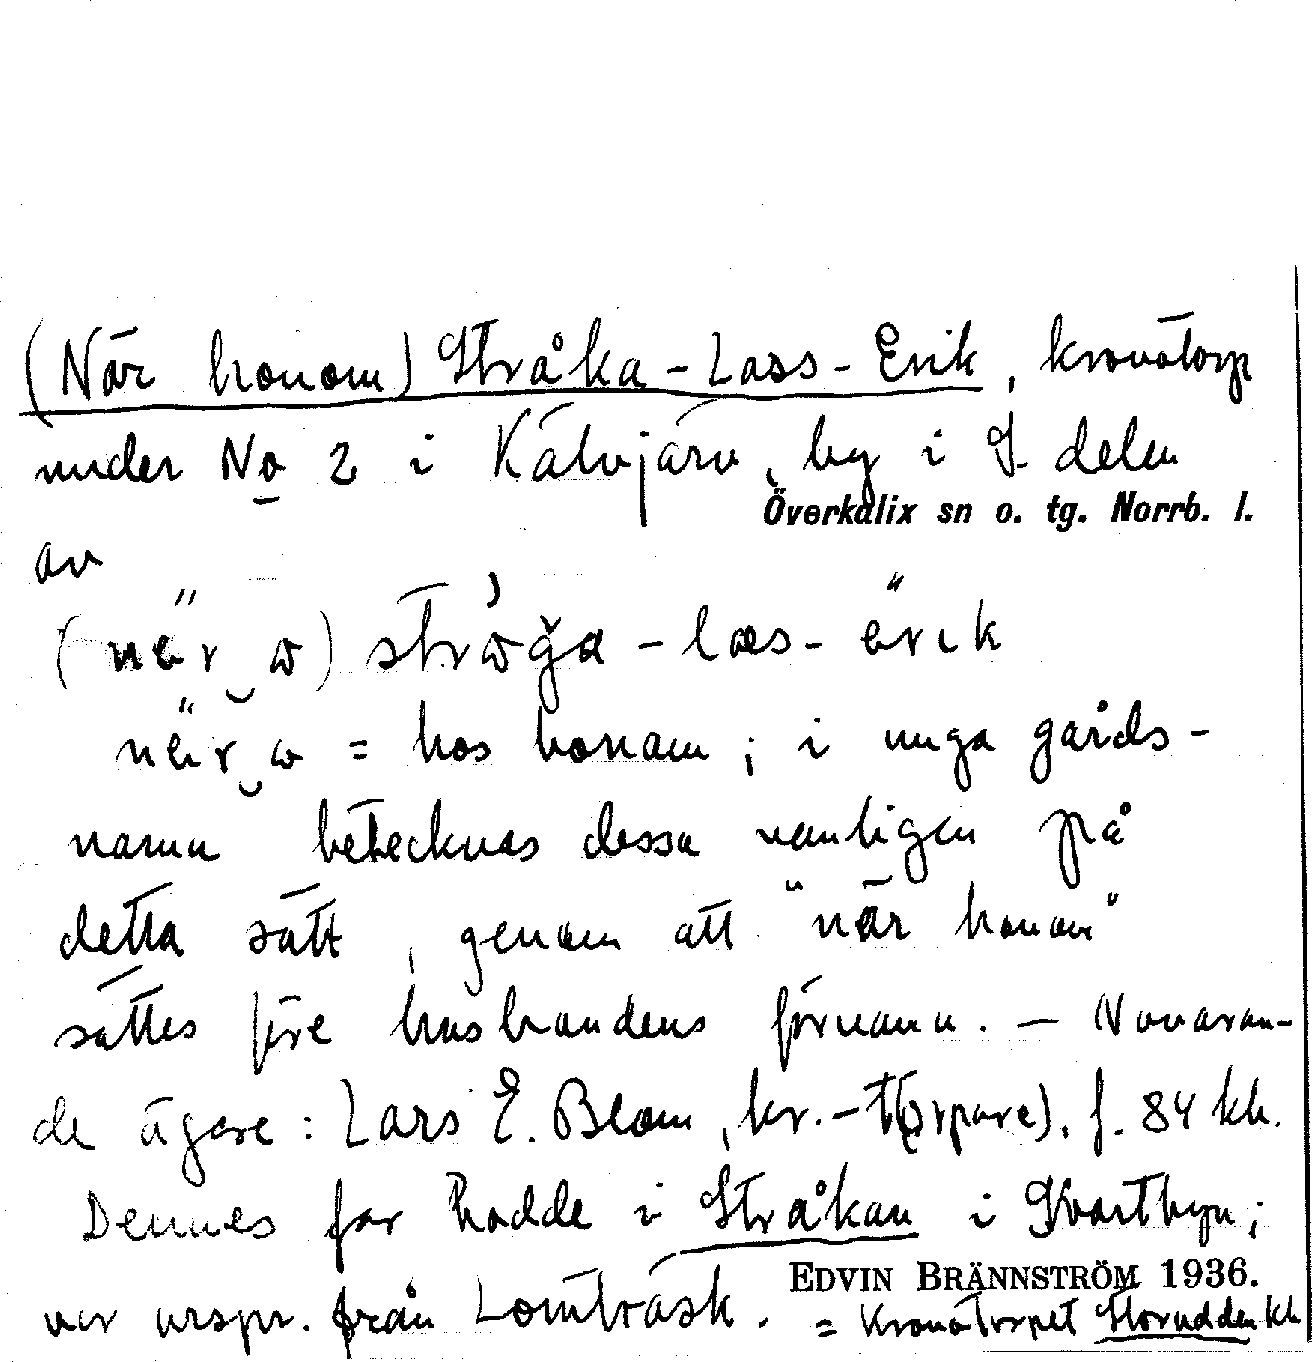 (När honom) Stråka-Lass-Erik, kronotorp
under No 2 i Kälvjärv, by i S. delen
Överkalix sn o. tg. Norrb. l.
av
stråga-læs-
= hos honom; i unga gårds-
namn betecknas dessa vanligen på
detta sätt, genom att "när honom"
sättes före husbondens förnamn. — Nuvaran-
de ägare: Lars E. Blom, kr.-t(orpare), f. 84 kh.
Dennes far bodde i Stråkan i Svartbyn;
var urspr. från Lomträsk.
EDVIN BRÄNNSTRÖM 1936.
= Kronotorpet Storudden kh